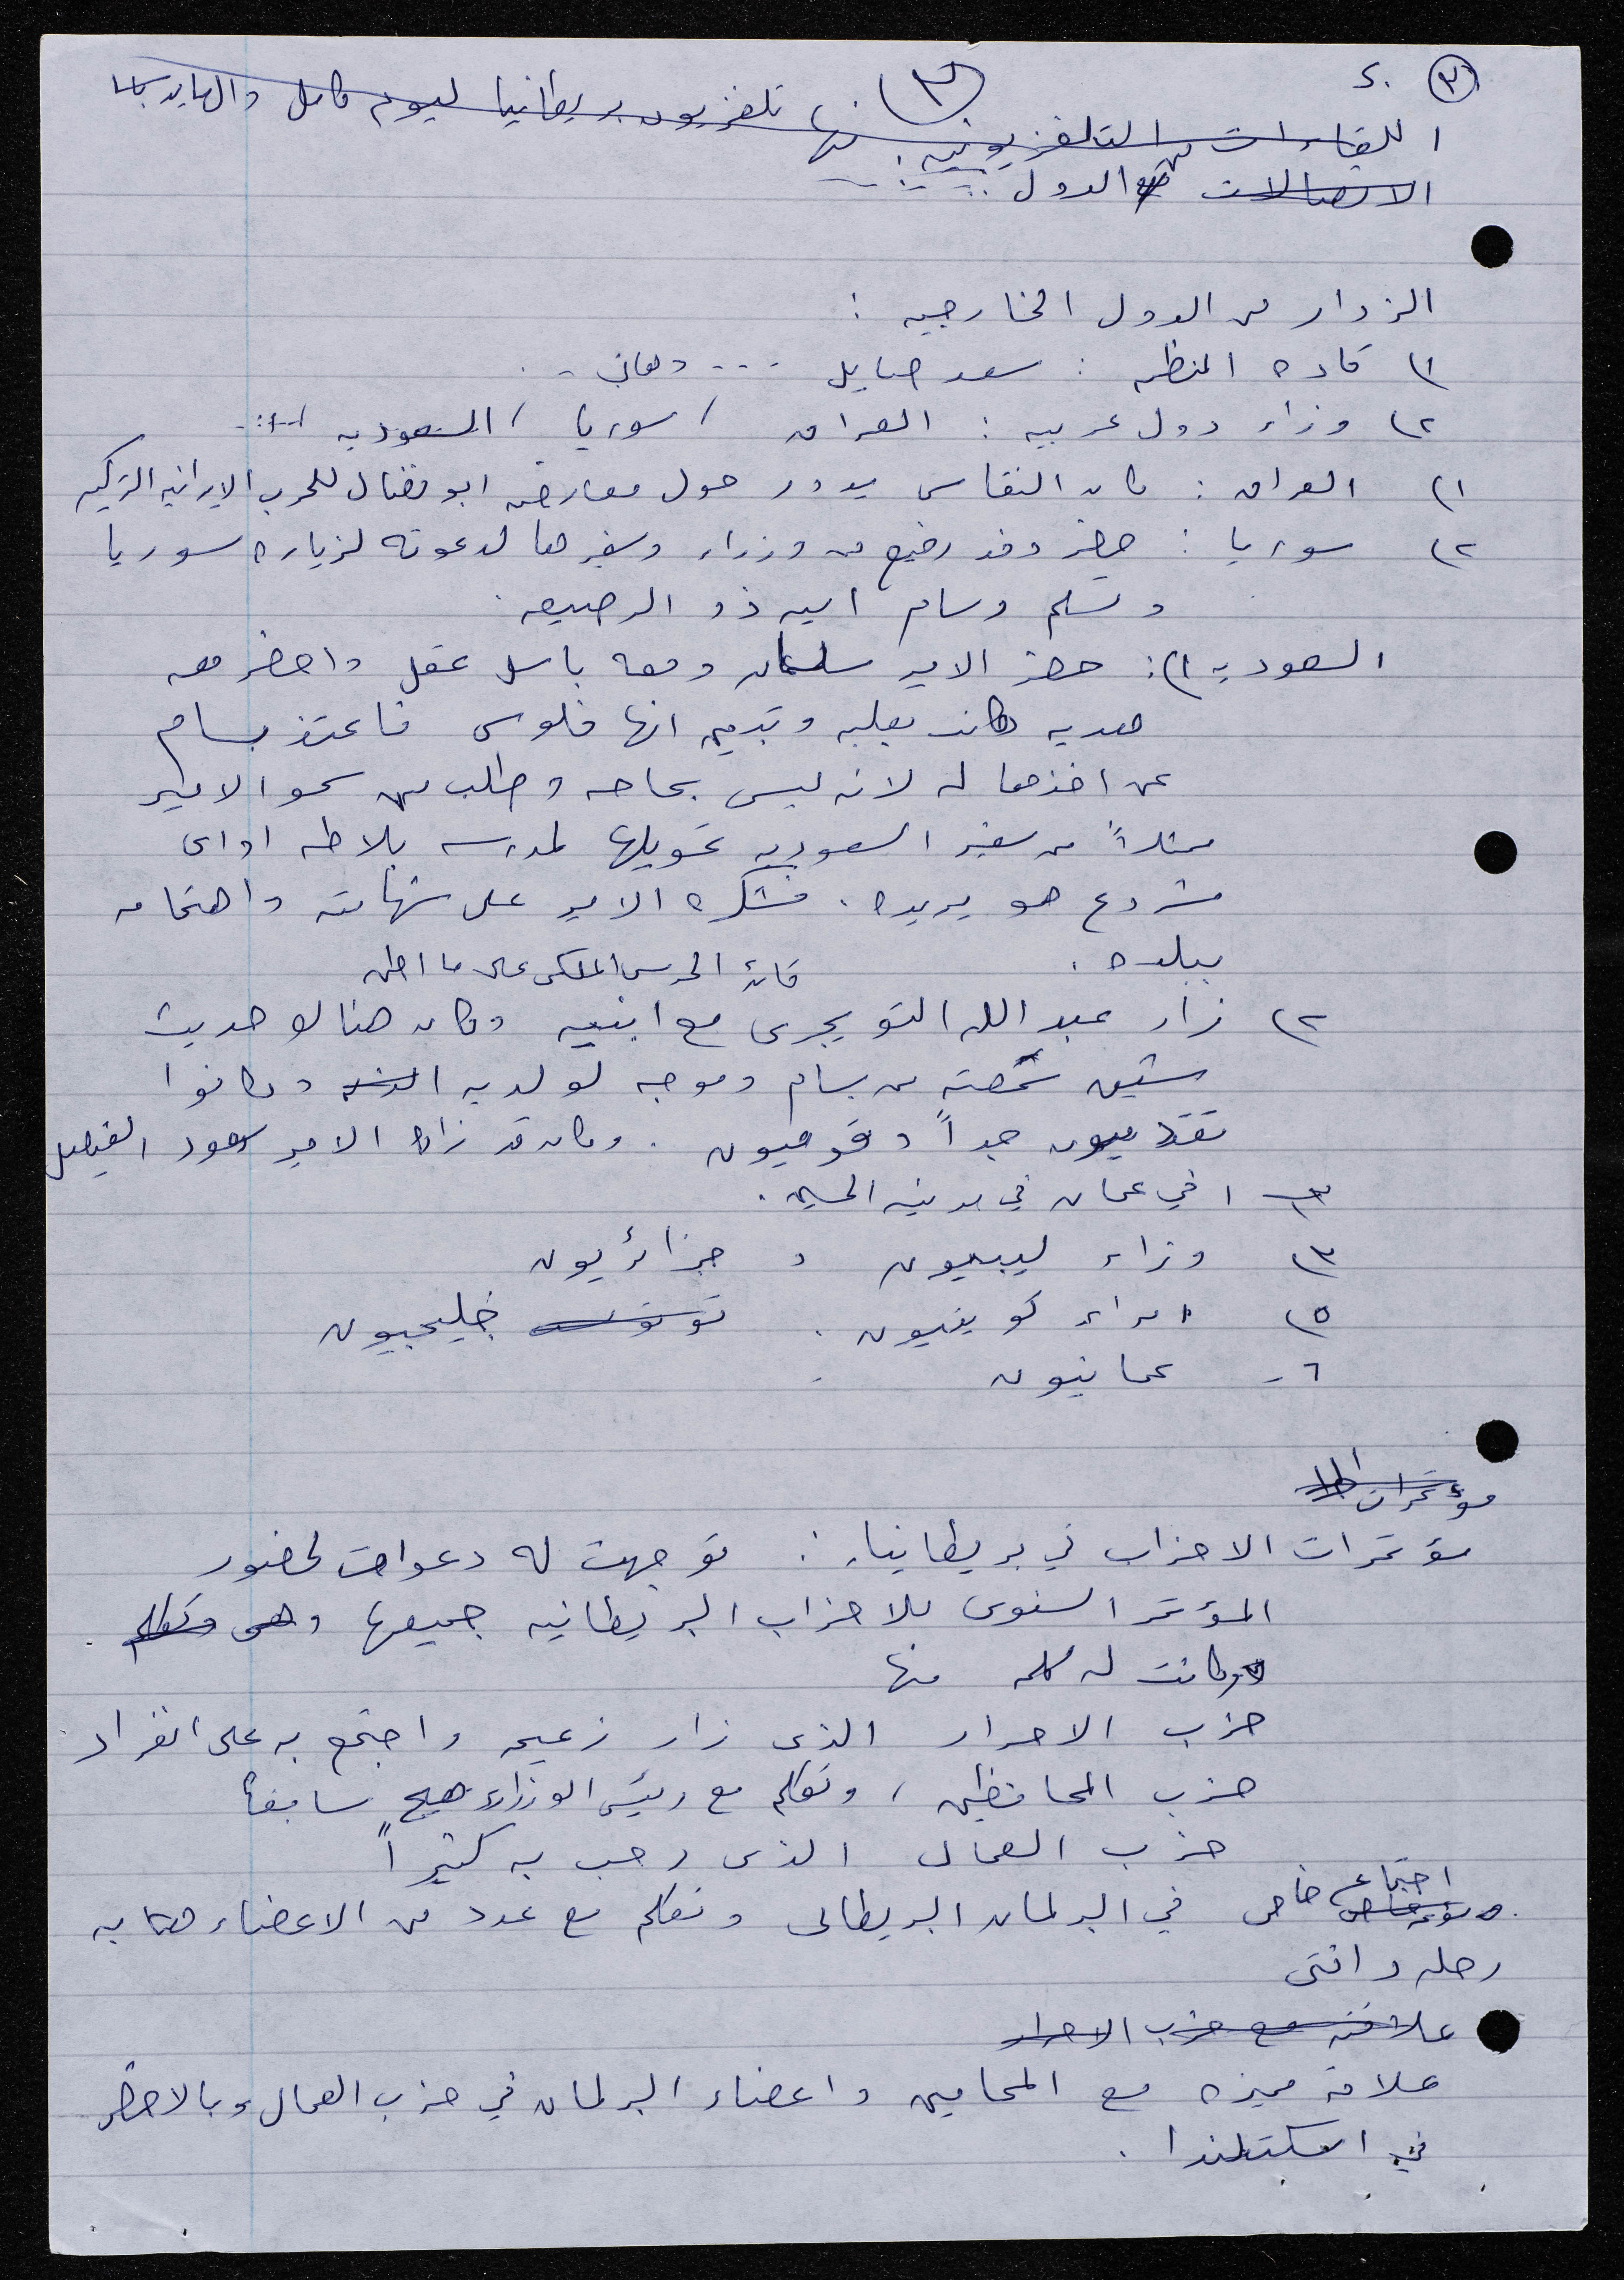 ٣ ٥.
(٣)
اللقاءات التلفزيونيه: منها تلفزيون بريطانيا ليوم كامل والهايد بارك
الاتصالات من الدول
الزوار من الدول الخارجيه :
١) قاده المنظمه : سعد صايل ... وهاني ..
٢) وزراء دول عربيه : العراق / سوريا / السعوديه
١) العراق : كان النقاش يدور حول معارضه ابو نضال للحرب الايرانيه
٢) سوريا : حضر وفد رفيع من وزراء وسفيرها لدعوته لزيارة سوريا
وتسلم وسام اميه ذو الرصيعه.
السعوديه ١): حضر الامير سلمان ومعه باسل عقل واحضر معه
هديه كانت بعلبه وتبين انها فلوس فاعتذر بسام
عن اخذها له لانه ليس بحاجه وطلب من سمو الامير
ممثلاً من سفير السعوديه تحويلها لمدرسه بلاطه او اى
مشروع هو يريده . فشكره الامير على شهامته واهتمامه
ببلده .
قائد الحرس الملكى على ما اظن
٢) زار عبد الله التويجرى مع ابنيه وكان هنالك حديث
شيق من بسام وموجه لولديه وكانوا
تقدميون جداً وقوميون . وكان قد زاره الامير سعود الفيصل
في عمان في مدينه الحسين .
٣) وزراء ليبيون و جزائريون
٥) امراء كويتيون . خليجيون
٦- عمانيون
مؤتمرات
مؤتمرات الاحزاب في بريطانيا : توجهت له دعوات لحضور
المؤتمر السنوى للاحزاب البريطانيه جميعها وهى وتكلم
وكانت له كلمه منها
حزب الاحرار الذى زار زعيمه واجتمع به على انفراد
حزب المحافظين ، وتكلم مع رئيس الوزراء هيج سابقاً
حزب العمال الذى رحب به كثيراً
اجتماع خاص في البرلمان البريطانى وتكلم مع عدد من الاعضاء
علاقته مع حزب الاحرار
علاقه مميزه مع المحامين واعضاء البرلمان في حزب العمال وبالاخص
في اسكتلندا .